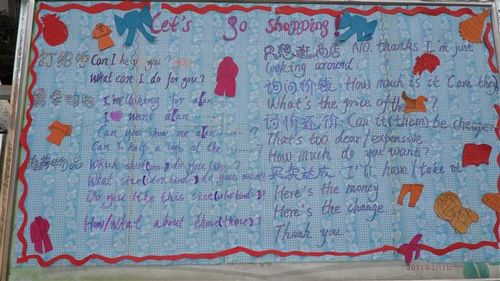 Let's go shopping!
打招呼 Can I help you?
What can I do for you?
I'm looking for a/an
I want a/an
Can you show me a/an ?
Can I help a look at the
Which skirt do you like?
What size do you want?
Do you like this size
How/What about these(those)?
只想逛商店 NO. thanks I'm just
looking around.
询问价钱. How much is it (are they)
What's the price of the
讨价还价. Can it(them) be cheaper?
That's too dear/expensive.
How much do you want?
买卖达成 I'll have/take it
Here's the money
Here's the change
Thank you